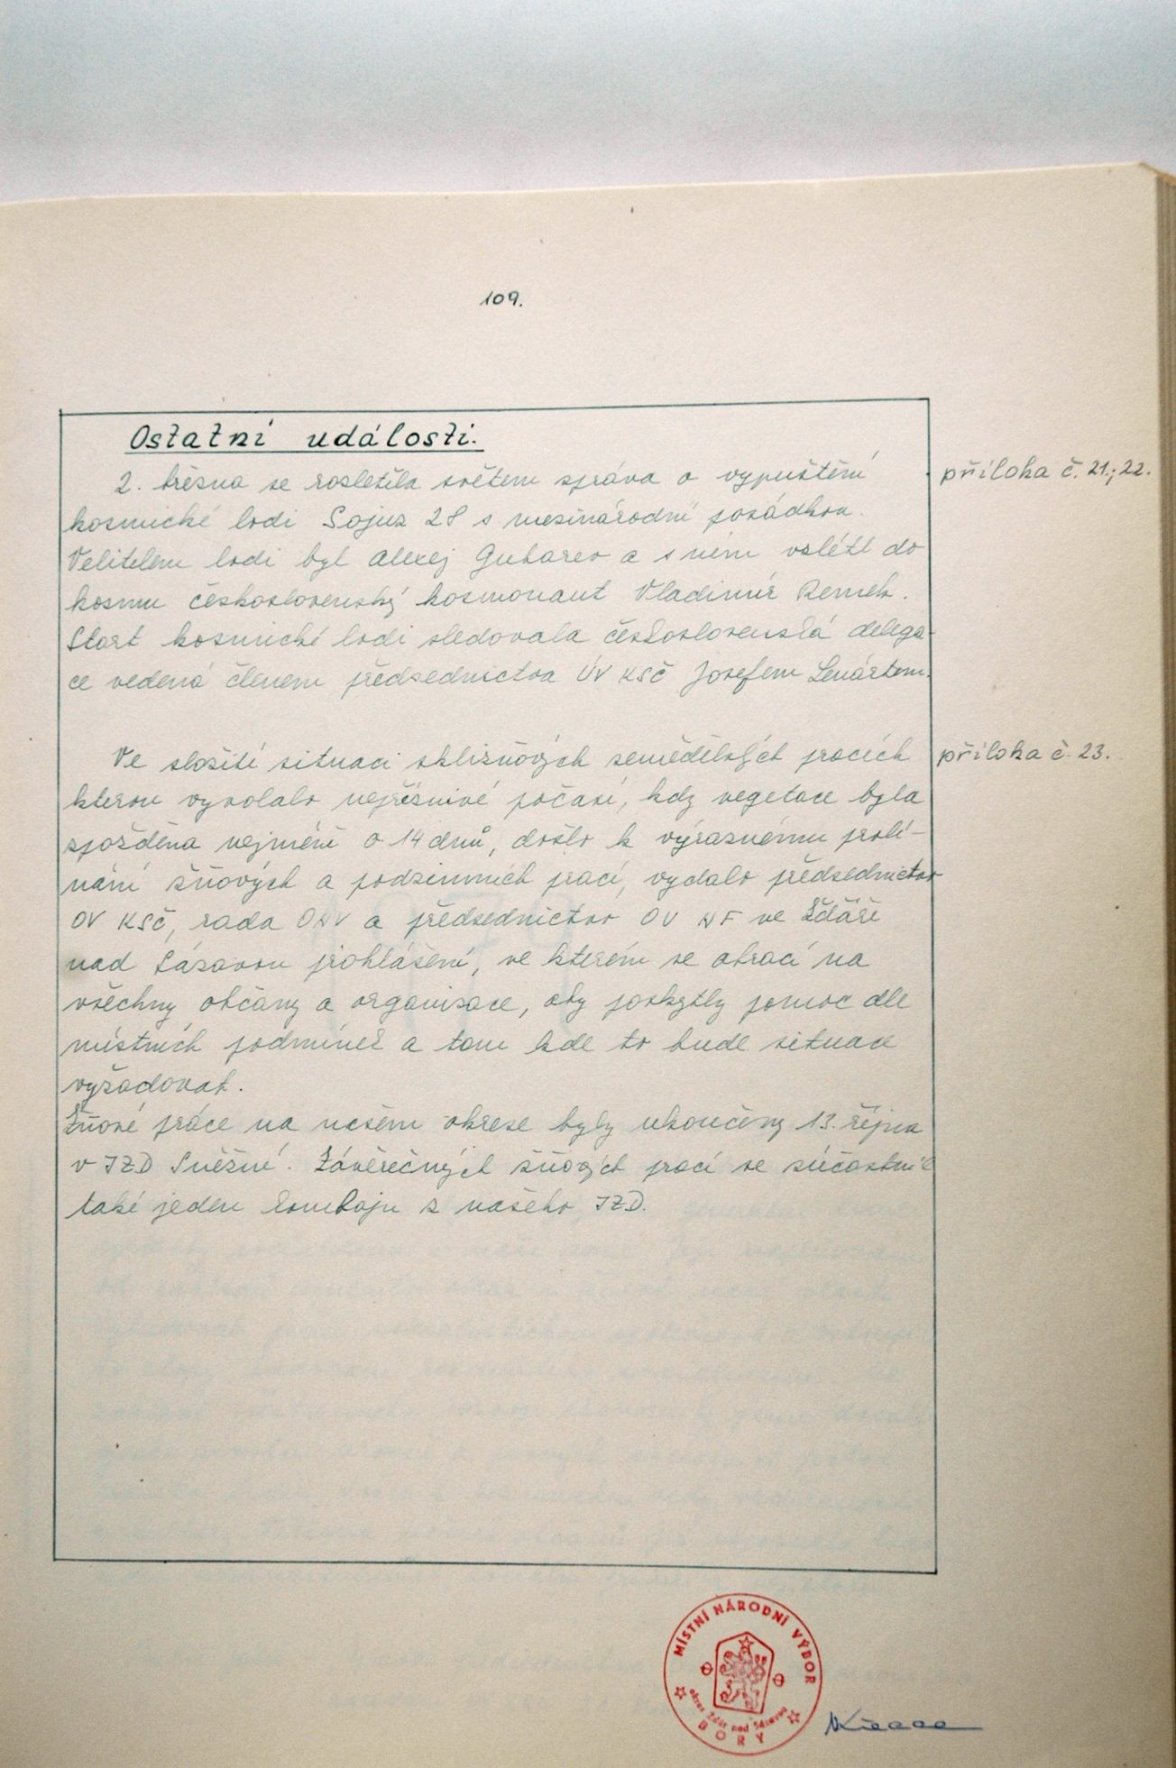 109.
Ostatní události.
2. března se rozletěla světem zpráva o vypuštění
příloha č. 21, 22.
kosmické lodi Sojuz 28 s mezinárodní posádkou.
Velitelem lodi byl Alexej Gubarev a s ním vzlétl do
kosmu československý kosmonaut Vladimír Remek.
Start kosmické lodi sledovala československá delega-
ce vedená členem předsednictva ÚV KSČ Josefem Lenártem.
Ve složité situaci sklizňových zemědělských pracích
příloha č. 23.
kterou vyvolalo nepříznivé počasí, kdy vegetace byla
zpožděna nejméně o 14 dnů, došlo k výraznému prolí-
nání žňových a podzimních prací, vydalo předsednictvo
OV KSČ, rada ONV a předsednictvo OV NF ve Žďáře
nad Sázavou prohlášení, ve kterém se obrací na
všechny občany a organizace, aby poskytly pomoc dle
místních podmínek a tam kde to bude situace
vyžadovat.
Žňové práce na našem okrese byly ukončeny 13. října
v JZD Sněžné. Závěrečných žňových prací se zúčastnil
také jeden kombajn z našeho JZD.
MÍSTNÍ NÁRODNÍ VÝBOR
okres Žďár nad Sázavou
BORY